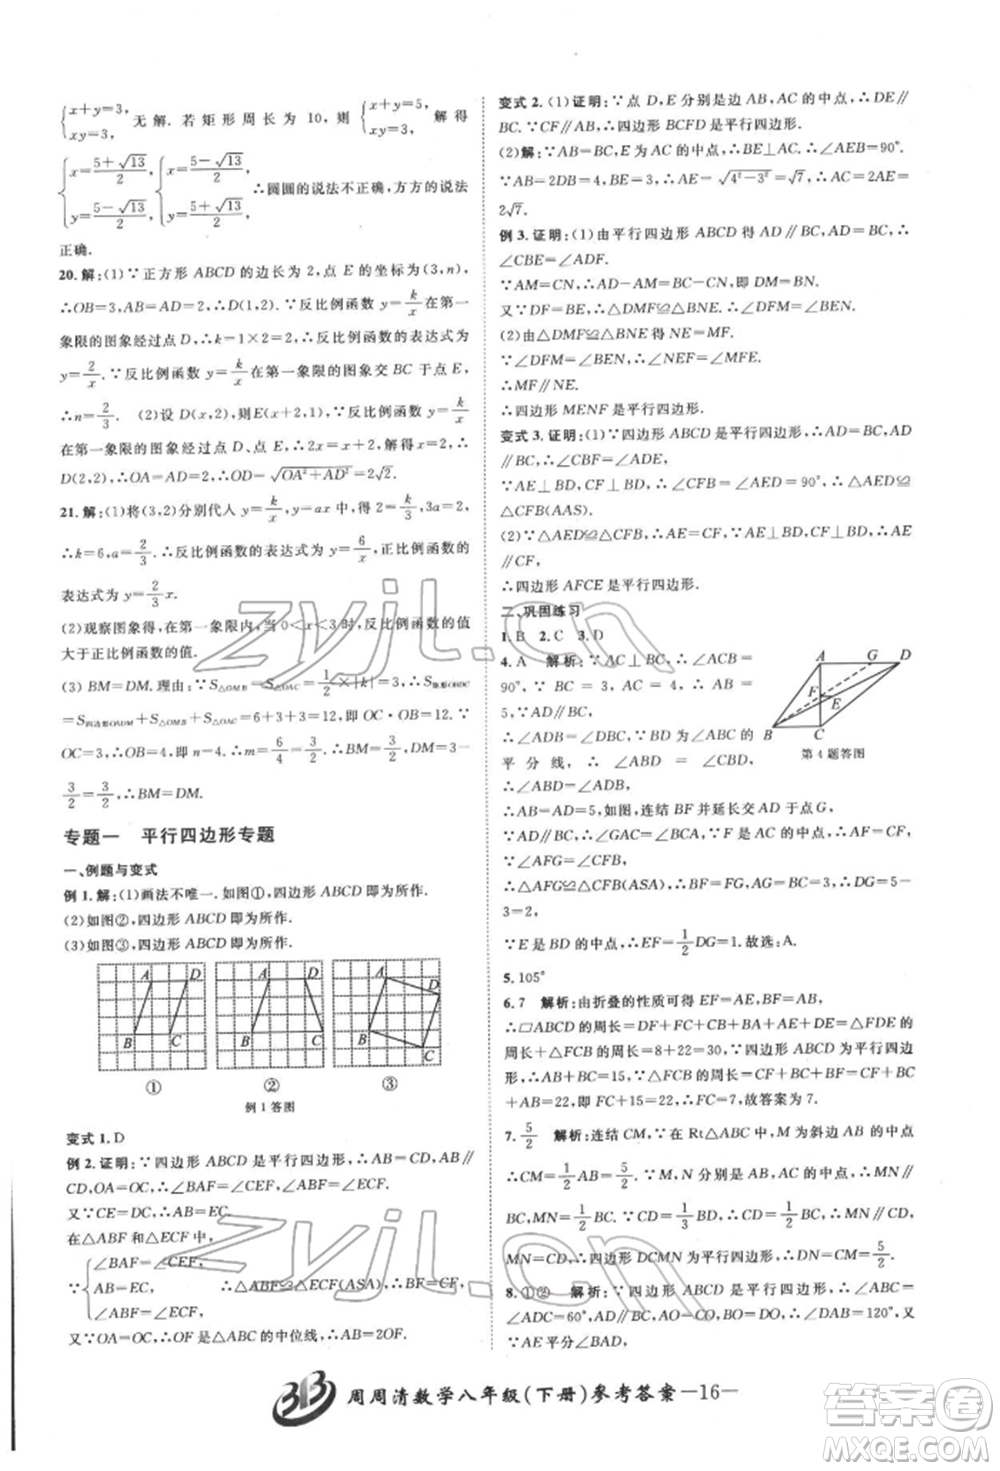 {x+y=3, xy=3, 无解. 若矩形周长为 10, 则 {x+y=5, xy=3, 解得
{x=(5+√13)/2, y=(5-√13)/2, {x=(5-√13)/2, y=(5+√13)/2, ∴圆圆的说法不正确, 方方的说法
正确.
20. 解:(1)∵正方形 ABCD 的边长为 2, 点 E 的坐标为(3,n),
∴OB=3,AB=AD=2,∴D(1,2).∵反比例函数 y=k/x 在第一
象限的图象经过点 D,∴k=1×2=2,∴反比例函数的表达式为
y=2/x.∵反比例函数在第一象限的图象交 BC 于点 E,
∴n=2/3. (2)设 D(x,2),则E(x+2,1),∵反比例函数 y=k/x
在第一象限的图象经过点 D、点 E,∴2x=x+2,解得x=2,∴
D(2,2),∴OA=AD=2,∴OD=√(OA²+AD²)=2√2.
21. 解:(1)将(3,2)分别代人 y=k/x,y=ax 中,得 2=k/3,3a=2,
∴k=6,a=2/3,∴反比例函数的表达式为 y=6/x,正比例函数的
表达式为 y=2/3 x.
(2)观察图象得,在第一象限内,当 0<x<3时,反比例函数的值
大于正比例函数的值.
(3) BM=DM. 理由:∵S△OMB=S△OAC=1/2×|k|=3,∴S矩形OBDC
=S四边形OADM+S△OMB+S△OAC=6+3+3=12,即 OC·OB=12.∵
OC=3,∴OB=4,即 n=4.∴m=6/4=3/2,∴MB=3/2,DM=3-
3/2=3/2,∴BM=DM.
专题一 平行四边形专题
一、例题与变式
例 1. 解:(1)画法不唯一. 如图①,四边形 ABCD 即为所作.
(2)如图②,四边形 ABCD 即为所作.
(3)如图③,四边形 ABCD 即为所作.
A D A D A D
B C B C B C
① ② ③
例 1 答图
变式 1. D
例 2. 证明:∵四边形 ABCD 是平行四边形,∴AB∥
CD,OA=OC,∴∠BAF=∠ECF,∠ABF=∠CEF.
又∵CE=DC,∴AB=EC.
在△ABF 和△ECF 中,
∵{∠BAF=∠ECF, AB=EC, ∠ABF=∠ECF, ∴△ABF≌△ECF(ASA),∴BF=CF.
又∵OA=OC,∴OF 是△ABC 的中位线,∴AB=2OF.
变式 2. (1)证明:∵点 D,E 分别是边 AB,AC 的中点,∴DE∥
BC.∵CF∥AB,∴四边形 BCFD 是平行四边形.
(2)解:∵AB=BC,E 为 AC 的中点,∴BE⊥AC.∴∠AEB=90°.
∵AB=2DB=4,BE=3,∴AE=√(4²-3²)=√7,∴AC=2AE=
2√7.
例 3. 证明:(1)由平行四边形 ABCD 得 AD∥BC,AD=BC,∴
∠CBE=∠ADF.
∵AM=CN,∴AD-AM=BC-CN,即 DM=BN.
又∵DF=BE,∴△DMF≌△BNE.
(2)由△DMF≌△BNE 得 NE=MF.
∵∠DFM=∠BEN 得∠FEN=∠MFE,
∴MF∥NE.
∴四边形 MENF 是平行四边形.
变式 3. 证明:(1)∵四边形 ABCD 是平行四边形,∴AD=BC,AD
∥BC,∴∠ADE=∠CBF.
∵AE⊥BD,CF⊥BD,∴∠AED=∠CFB=90°,∴△AED≌
△CFB(AAS).
(2)∵△AED≌△CFB,∴AE=CF.∵AE⊥BD,CF⊥BD,∴AE
∥CF,
∴四边形 AFCE 是平行四边形.
二、巩固练习
1. B 2. C 3. D
4. A 解析:∵AC⊥BC,∴∠ACB=
90°,∴AB=
5,∵AD∥BC,∴∠ADB=
∠DBC,∵BD是∠ABC
的平分线,∴∠ABD=
∠CBD,∴∠ABD=
∠ADB,∴AB=AD=5,如图,连结 BF 并延长交 AD 于点 G,
∵AD∥BC,∴∠GAC=∠BCA,∵F 是 AC 的中点,∴AF=CF,
∴△AFG≌△CFB(ASA),∴BF=FG,AG=BC=3,∴DG=5-
3=2,
∵E 是 BD 的中点,∴EF=1/2 DG=1. 故选:A.
A G D
F E
B C
第 4 题答图
5. 105°
6. 7 解析:由折叠的性质可得 EF=AE,BF=AB,
∴▱ABCD 的周长=DF+FC+CB+AB+AE+DE=△FDE的
周长+△FCB的周长=8+22=30,∵四边形 ABCD 为平行四边
形,∴AB+BC=15,∵△FCB的周长=FC+CB+BF=FC+
CB+AB=22,即 FC+15=22,∴FC=7. 故答案为:7.
7. 5/2 解析:连结 CM,∵在 Rt△ABC 中,M 为斜边 AB 的中点,
∴CM=1/2 AB=5/2.∵M,N 分别是 AB,AC 的中点,∴MN∥
BC,MN=1/2 BC.∵CD=1/2 BC,∴MN=CD.又∵MN∥BC,
MN=CD,∴四边形 DCMN 为平行四边形,∴DN=CM=5/2.
8. ①② 解析:∵四边形ABCD为平行四边形,∴∠ABC=
∠ADC=60°,OA=OC,BO=DO,∴∠DAB=120°,
又∵AE平分∠BAD,
周周清数学八年级(下册)参考答案 —16—
zyjl.cn
zyjl.cn
答案圈
MXQE.COM